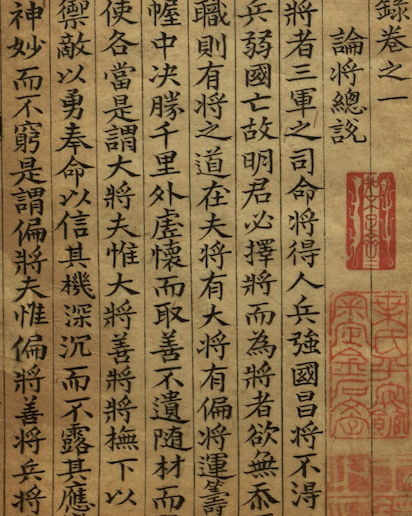 錄卷之一
論將總說
將者三軍之司命將得人兵強國昌將不得
兵弱國亡故明君必擇將而為將者欲無忝
職則有將之道在夫將有大將有偏將運籌
幄中决勝千里外虛懷而取善不遺随材而
使各當是謂大將夫惟大將善將將撫下以
禦敵以勇奉命以信其機深沉而不露其應
神妙而不窮是謂偏將夫惟偏將善將兵將